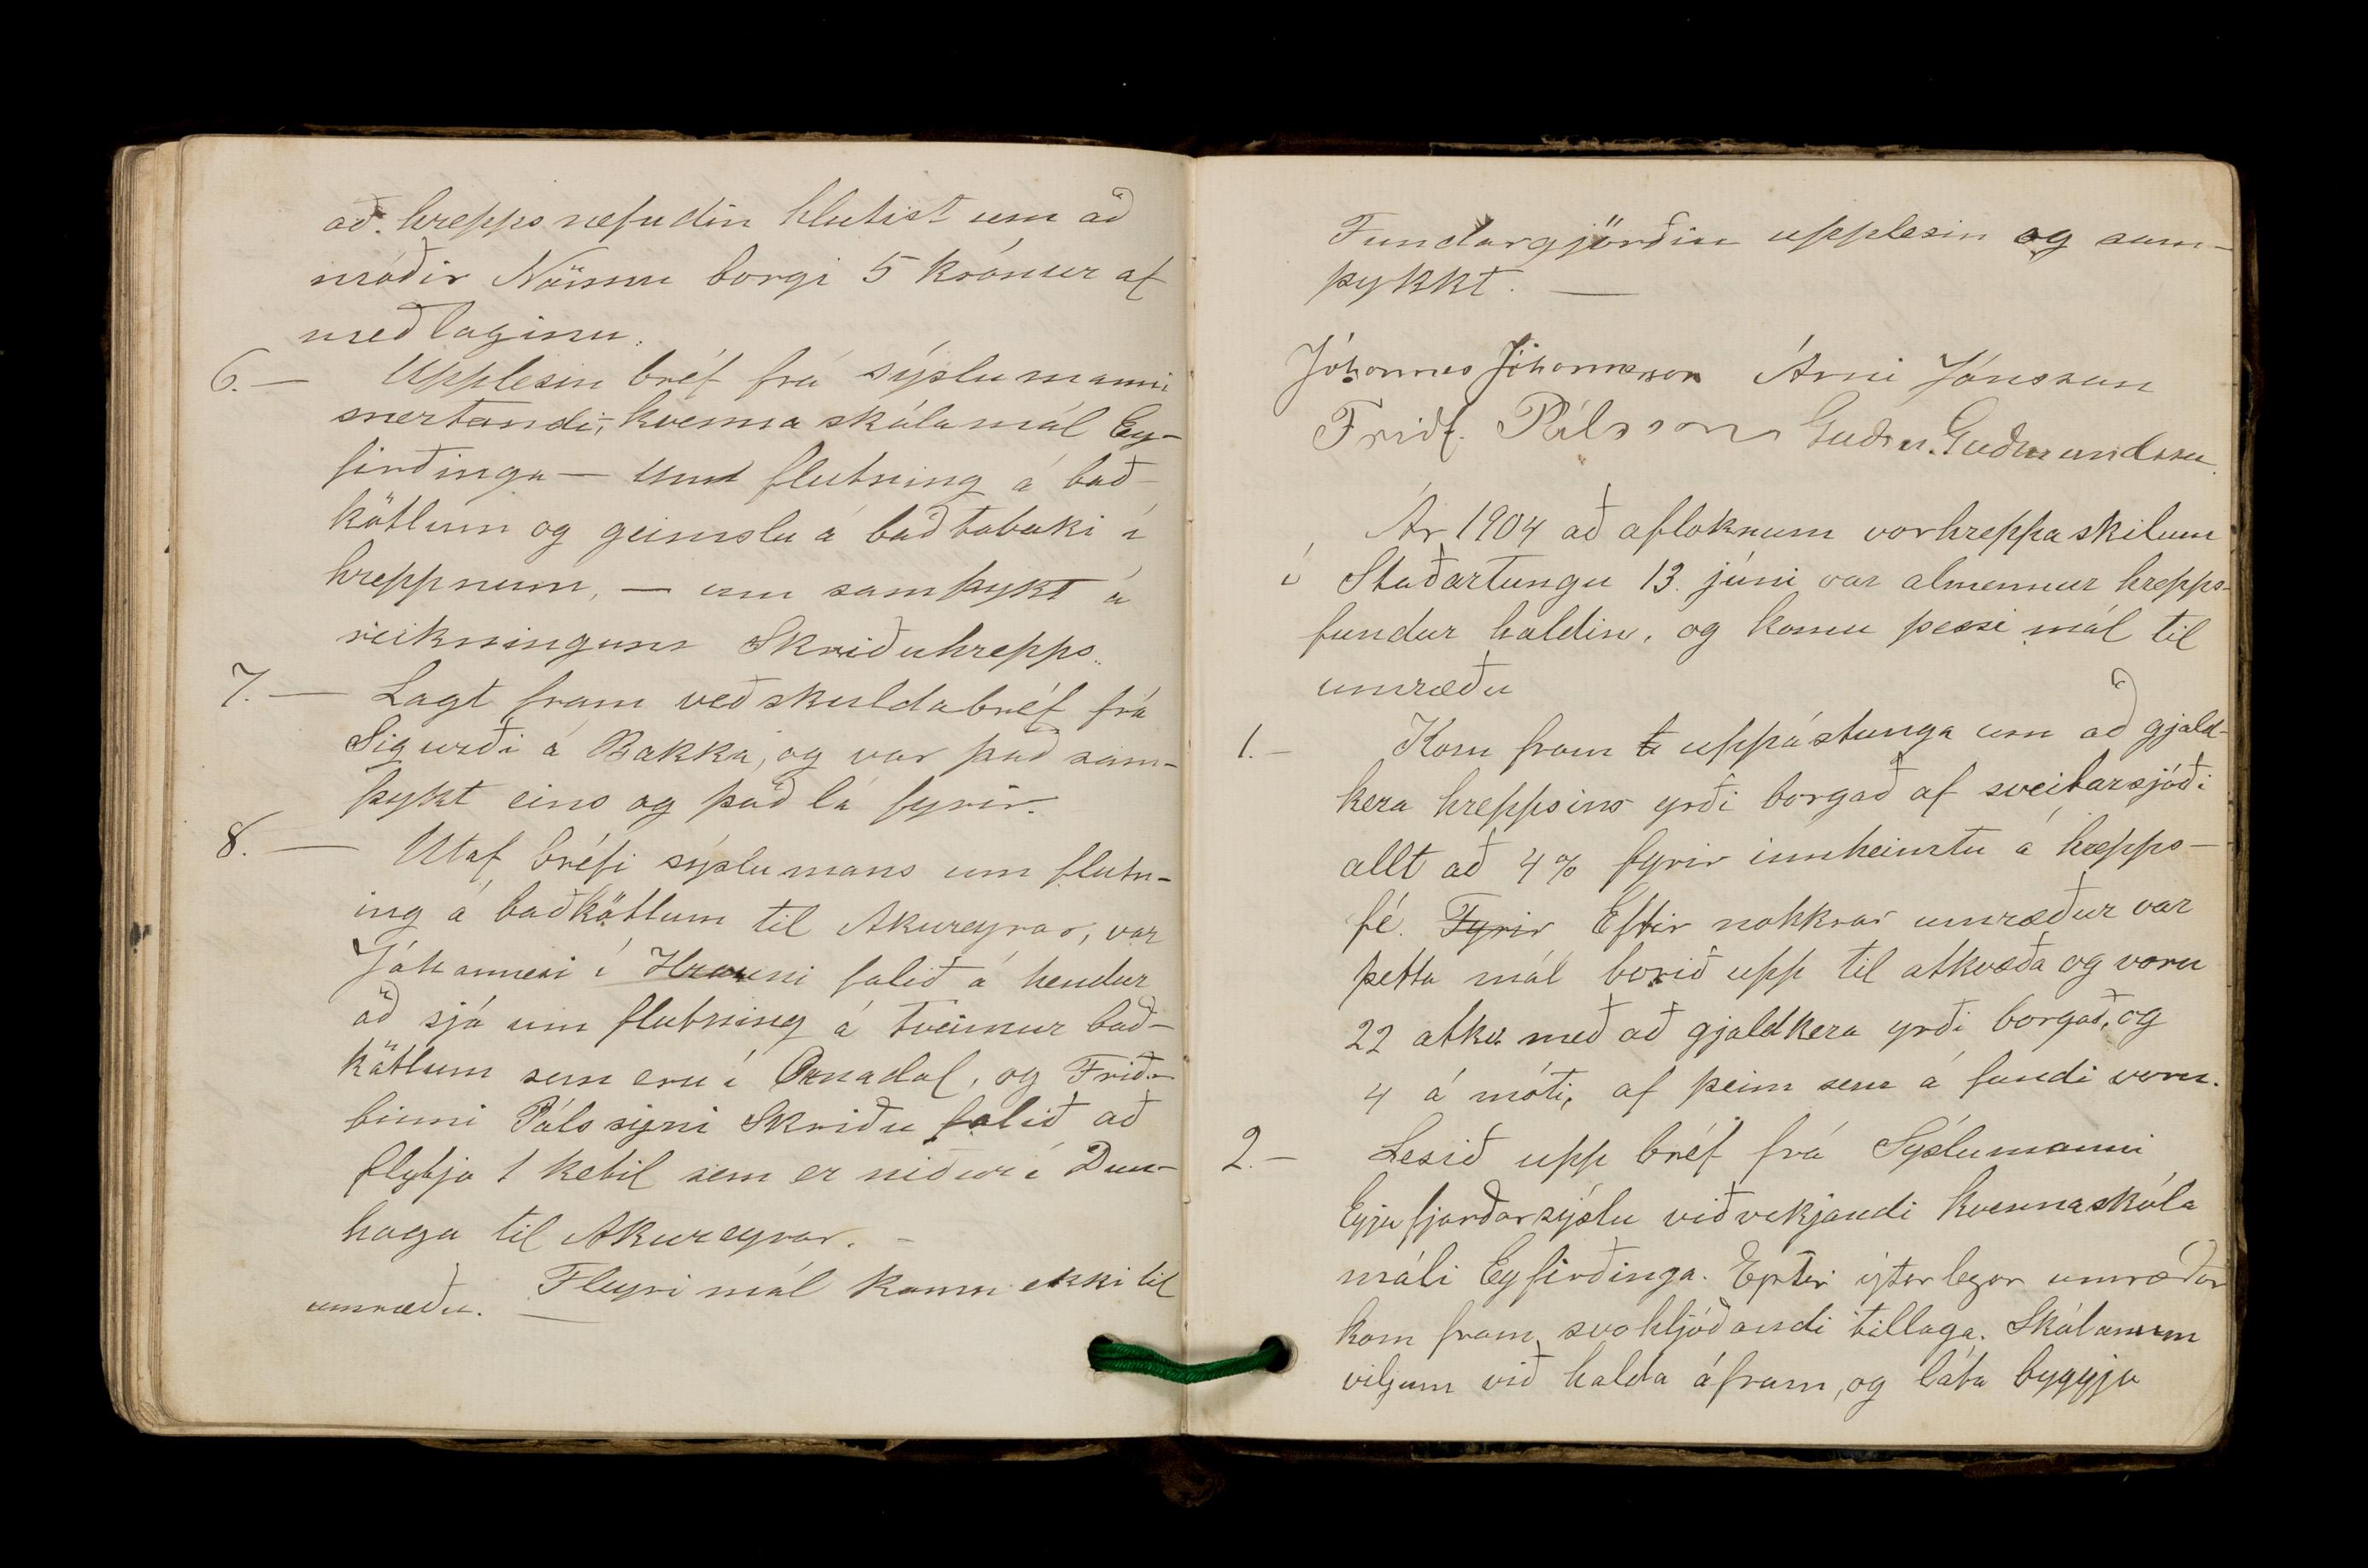 að hreppsnefndin hlutist um að
móðir Nönnu borgi 5 krónur af
meðlaginu.
6. — Upplesin bréf frá sýslumanni
snertandi, kvennaskólamál Ey-
firðinga — um flutning á bað-
kötlum og geimslu á baðtobaki í
hreppnum, — um samþykt á
reikningum Skriðuhrepps.
7. — Lagt fram veðskuldabréf frá
Sigurði á Bakka, og var það sam-
þykt eins og það lá fyrir.
8. — Utaf bréfi sýslumans um flutn-
ing á baðkötlum til Akureyrar, var
Jóhannesi í Hrauni falið á hendur
að sjá um flutning á tveimur bað-
kötlum sem eru í Öxnadal, og Frið-
finni Pálssyni Skriðu falið að
flytja 1 ketil sem er niður í Dun-
haga til Akureyrar. -
Fleyri mál komu ekki til
umræðu. —
Fundargjörðin upplesin og sam-
þykkt. —
Jóhannes Jóhannesson Árni Jónsson
Friðf. Pálsson Guðm. Guðmundsson.
Ár 1904 að afloknum vorhreppaskilum
í Staðartungu 13. júni var almennur hrepps-
fundur haldin, og komu þessi mál til
umræðu
1. - Kom fram t uppástunga um að gjald-
kera hreppsins yrði borgað af sveitarsjóði
allt að 4% fyrir innheimtu á hrepps-
fé. Fyrir Eftir nokkrar umræður var
þetta mál borið upp til atkvæða og voru
22 atkv. með að gjaldkera yrði borgað, og
4 á móti, af þeim sem á fundi voru.
2. - Lesið upp bréf frá Sýslumanni
Eyjafjarðarsýslu viðvikjandi kvennaskóla
máli Eyfirðinga. Eptir ýtarlegar umræður
kom fram svohljóðandi tillaga. Skólanum
viljum við halda áfram, og láta byggja